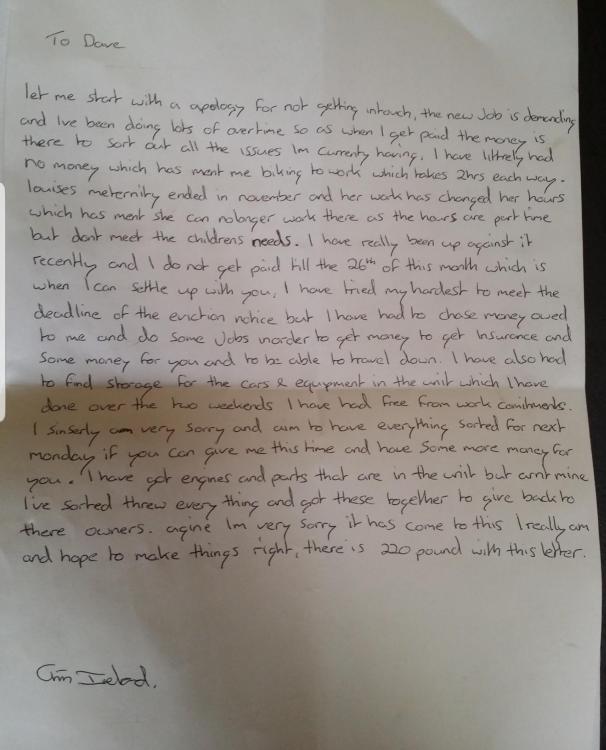 To Dave
let me start with a apology for not getting intouch, the new Job is demanding
and Ive been doing lots of overtime so as when I get paid the money is
there to sort out all the issues Im currenty having, I have littrely had
no money which has ment me biking to work which takes 2hrs each way.
louises meternity ended in november and her work has changed her hours
which has ment she can nolonger work there as the hours are part time
but dont meet the childrens needs. I have really been up against it
recently and I do not get paid till the 26th of this month which is
when I can settle up with you, I have tried my hardest to meet the
deadline of the eviction notice but I have had to chase money owed
to me and do some Jobs inorder to get money to get Insurance and
Some money for you and to be able to travel down. I have also had
to find storage for the cars & equipment in the unit which I have
done over the two weekends I have had free from work comitments.
I sinserly am very sorry and aim to have everything sorted for next
monday if you can give me this time and have Some more money for
you. I have got engines and parts that are in the unit but arnt mine
I've sorted threw every thing and got these together to give back to
there owners. agine Im very sorry it has come to this I really am
and hope to make things right, there is 220 pound with this letter.